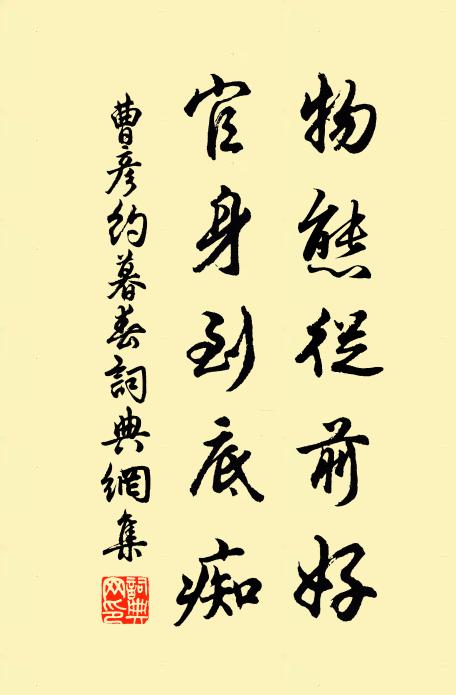 物態從前好
官身到底痴
曹彥約暮春詞典網集
詞典网印